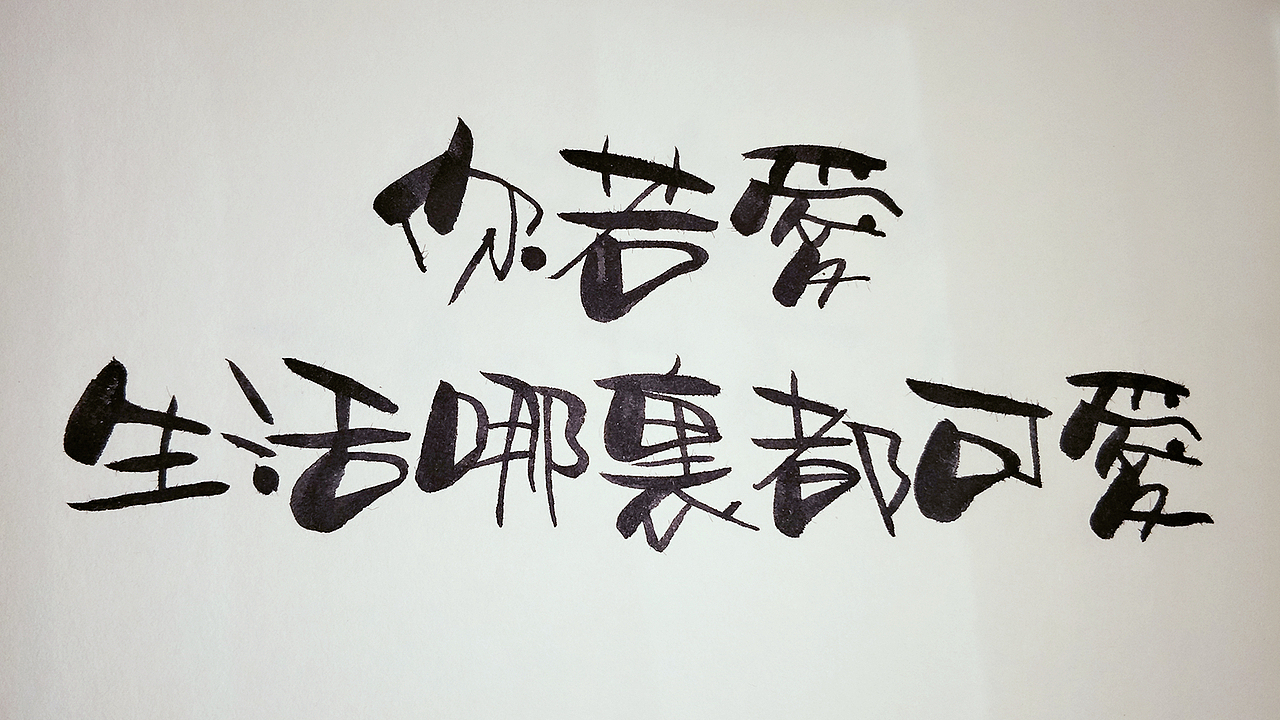 你若愛
生活哪裏都可愛